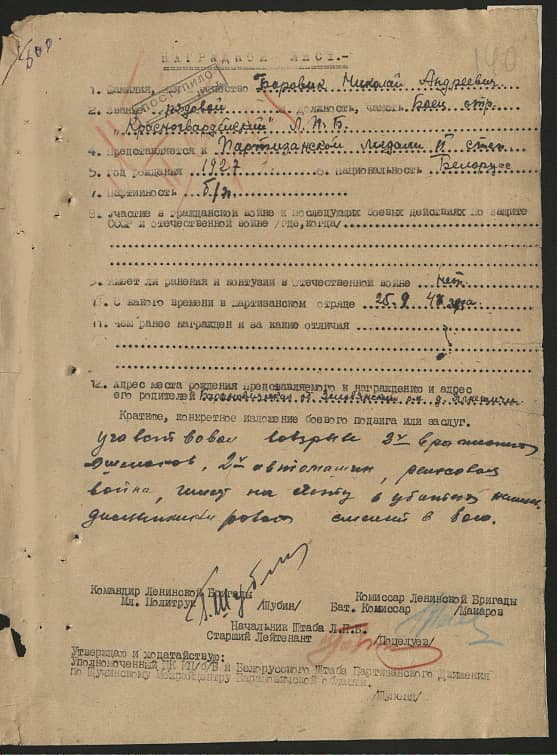 НАГРАДНОЙ ЛИСТ.-
140
ПОСТУПИЛО
1. Фамилия, имя, отчество Боровик Николай Андреевич
2. Звание рядовой 3. Должность, часть Боец отр.
„Красногвардейский" Л.П.Б.
4. Представляется к Партизанской медали II степ
5. Год рождения 1927 6. Национальность Белорусс
7. Партийность б/п
8. Участие в гражданской войне и последующих боевых действиях по защите
СССР и отечественной войне /где, когда/
9. Имеет ли ранения и контузии в отечественной войне Нет
10. С какого времени в партизанском отряде 25.9 43 года
11. Чем ранее награжден и за какие отличия
12. Адрес места рождения представляемого к награждению и адрес
его родителей Барановическая об.
Краткое, конкретное изложение боевого подвига или заслуг.
участвовал взрыве 2х вражеских
эшелонов, 2х автомашин, рельсовая
война, имеет на счету 2 убитых
дисциплинирован смелый в бою.
Командир Ленинской Бригады
Мл. Политрук /Шубин/
Комиссар Ленинской Бригады
Бат. Комиссар /Макаров
Начальник Штаба Л.П.Б.
Старший Лейтенант /Поделуев/
Утверждаю и ходатайствую:
Уполномоченный ЦК КП/б/Б и Белорусского Штаба Партизанского Движения
по Щучинскому Межрайцентру Барановичской области.
/Шупеня/